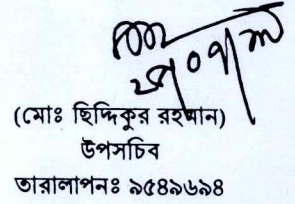 (মোঃ ছিদ্দিকুর রহমান)
উপসচিব
তারালাপনঃ ৯৫৪৯৬৯৪